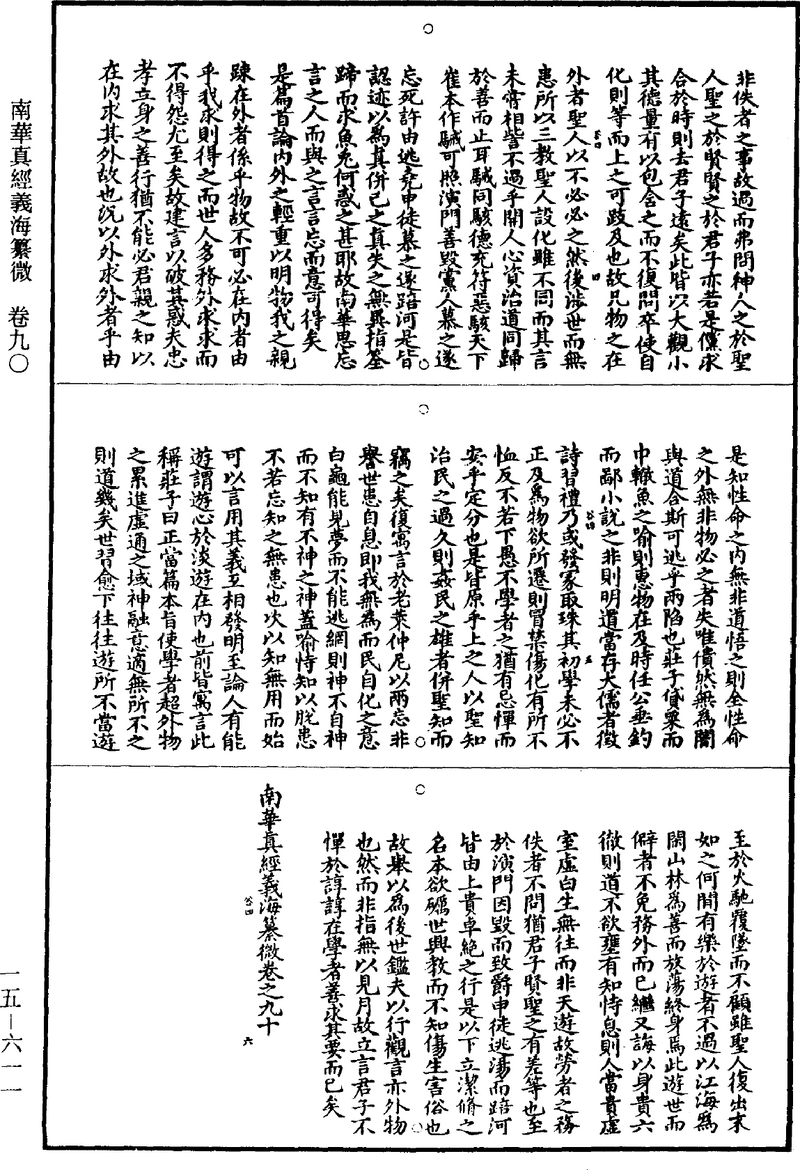 南華真經義海纂微　卷九〇
非佚者之事故過而弗問神人之於聖
人聖之於賢賢之於君子亦若是儻求
合於時則去君子遠矣此皆以大觀小
其德量有以包含之而不復問卒使自
化則等而上之可跂及也故凡物之在
外者聖人以不必必之然後涉世而無
患所以三教聖人設化雖不同而其言
未嘗相訾不過乎開人心資治道同歸
於善而止耳駴同駭德充符惡駭天下
崔本作駴可照演門善毀黨人慕之遂
忘死許由逃堯申徒慕之遂踣河是皆
認迹以為真併己之真失之無異指筌
蹄而求魚兔何惑之甚耶故南華思忘
言之人而與之言言忘而意可得矣
是篇首論內外之輕重以明物我之親
踈在外者係乎物故不可必在內者由
乎我求則得之而世人多務外求求而
不得怨尤至矣故建言以破其惑夫忠
孝立身之善行猶不能必君親之知以
在內求其外故也況以外求外者乎由
是知性命之內無非道悟之則全性命
之外無非物必之者失唯僓然無為闇
與道合斯可逃乎兩陷也莊子貸粟而
巾轍魚之喻則惠物在及時任公垂釣
而鄙小說之非則明道當存大儒者徵
詩習禮乃或發冢取珠其初學未必不
正及為物欲所遷則冒禁傷化有所不
恤反不若下愚不學者之猶有忌憚而
安乎定分也是皆原乎上之人以聖知
治民之過久則姦民之雄者併聖知而
竊之矣復寓言於老萊仲尼以兩忘非
譽世患自息即我無為而民自化之意
白龜能見夢而不能逃網則神不自神
而不知有不神之神蓋喻恃知以脫患
不若忘知之無患也次以知無用而始
可以言用其義互相發明至論人有能
遊謂遊心於淡遊在內也前皆寓言此
稱莊子曰正當篇本旨使學者超外物
之累進虛通之域神融意適無所不之
則道幾矣世習愈下往往遊所不當遊
至於火馳覆墜而不顧雖聖人復出末
如之何間有樂於遊者不過以江海為
閑山林為善而放蕩終身焉此遊世而
僻者不免務外而已繼又誨以身貴六
徹則道不欲壅有知恃息則人當貴虛
室虛白生無往而非天遊故勞者之務
佚者不問猶君子賢聖之有差等也至
於演門因毀而致爵申徒逃湯而踣河
皆由上貴卓絶之行是以下立潔脩之
名本欲礪世興教而不知傷生害俗也
故舉以為後世鑑夫以行觀言亦外物
也然而非指無以見月故立言君子不
憚於諄諄在學者善求其要而已矣
南華真經義海纂微卷之九十
一五—六一一